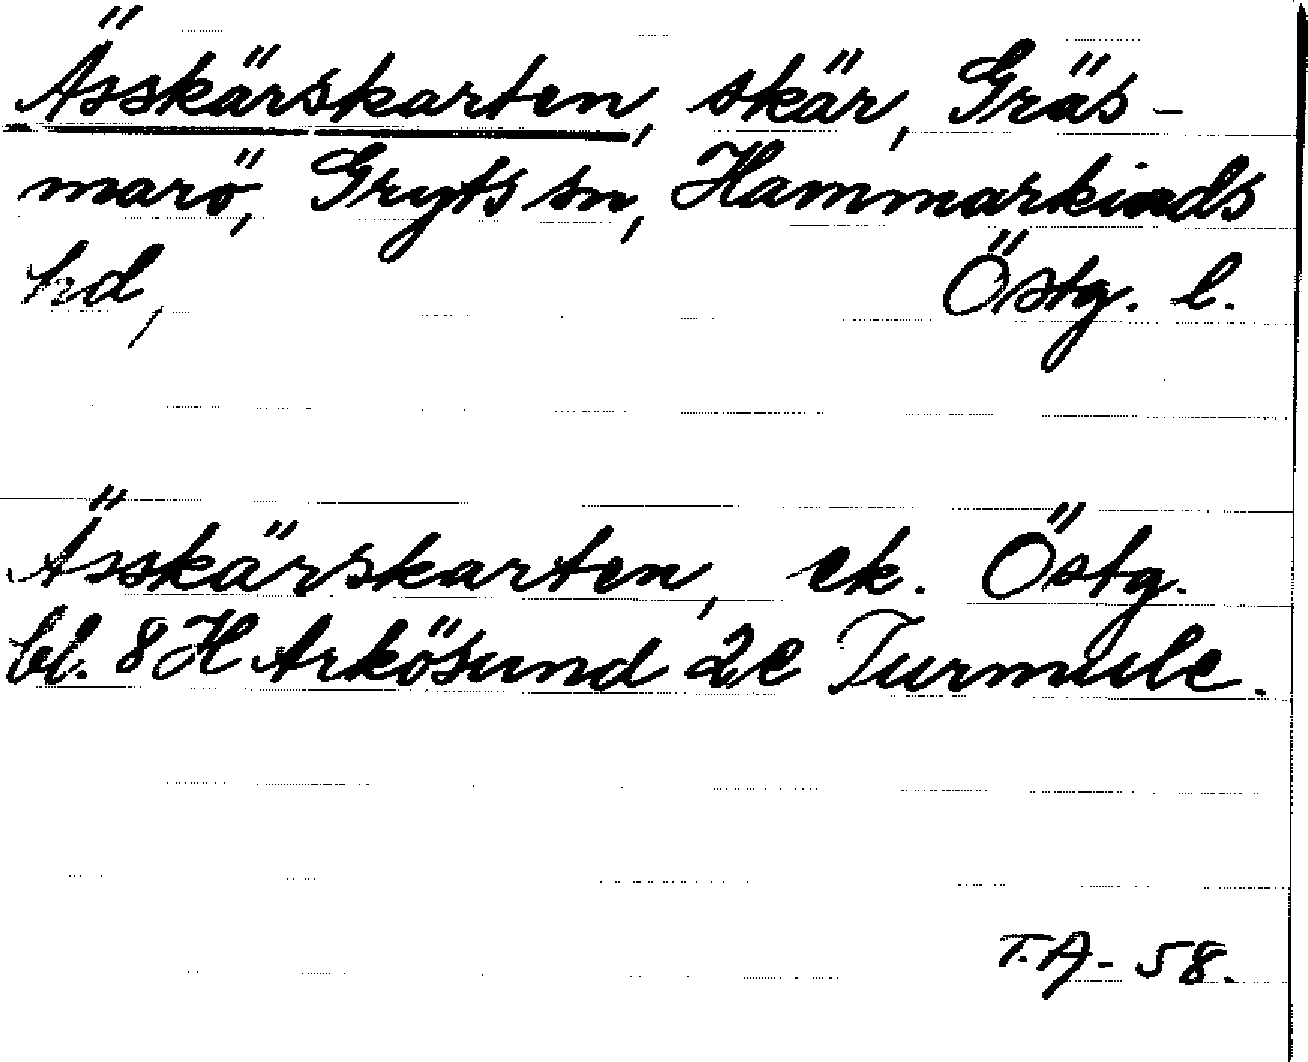 Ässkärskarten, skär, Gräs-
marö, Gryts sn, Hammarkinds
hd, Östg. l.
Ässkärskarten, ek. Östg.
bl. 8H Arkösund 2c Turmule.
T.A-58.